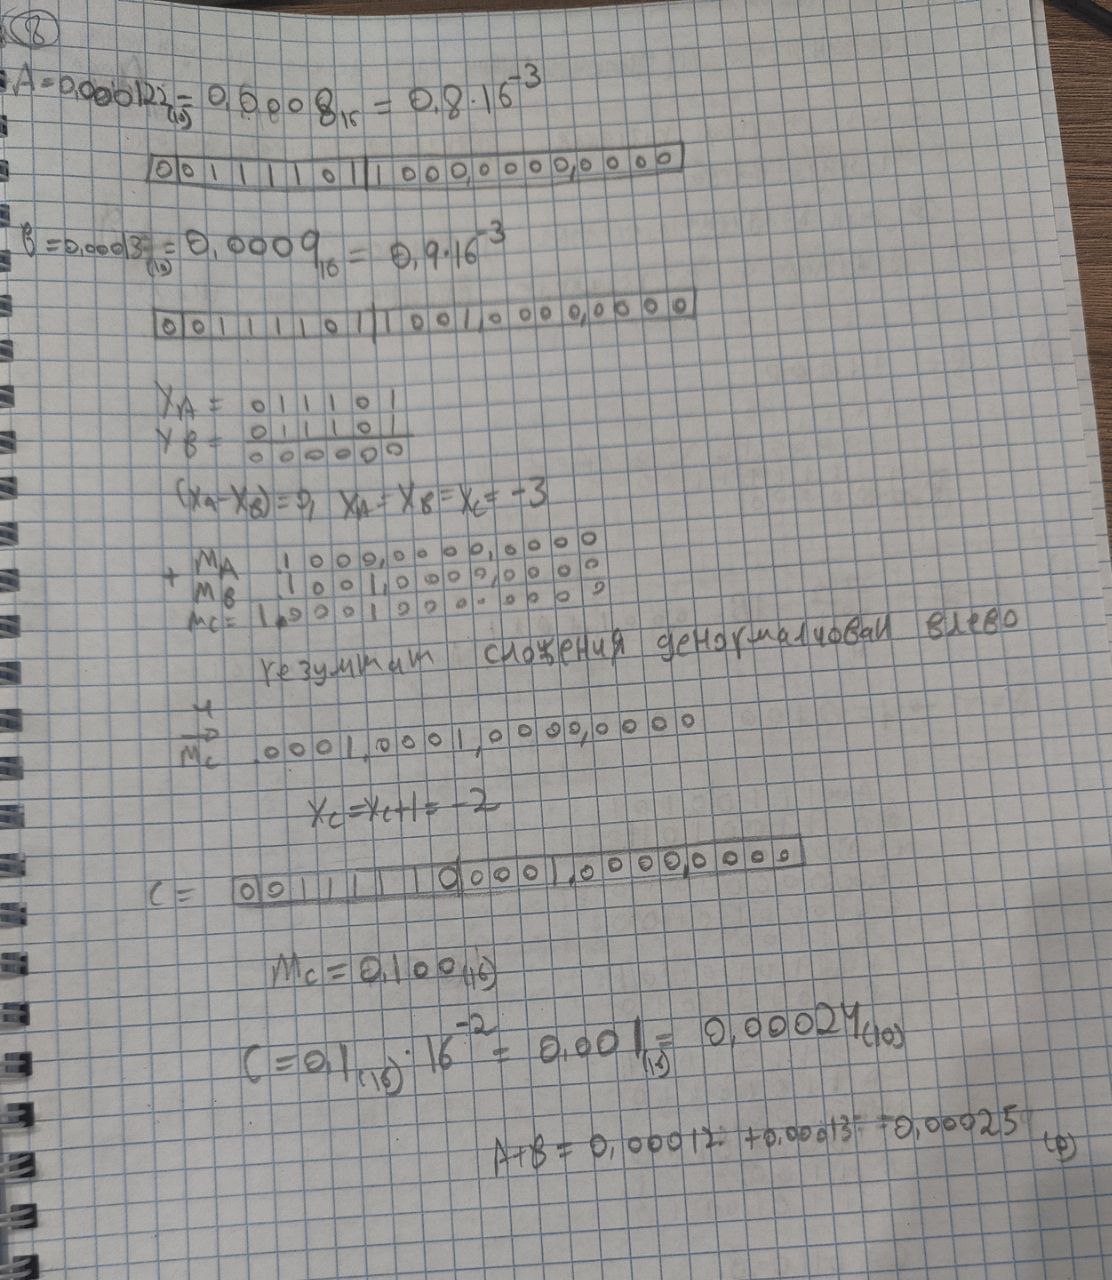 8
A = 0,000122(10) = 0,0008₁₆ = 0,8·16⁻³
0 0 1 1 1 1 0 1 | 1 0 0 0, 0 0 0 0, 0 0 0 0
B = 0,00013(10) = 0,0009₁₆ = 0,9·16⁻³
0 0 1 1 1 1 0 1 | 1 0 0 1, 0 0 0 0, 0 0 0 0
XA = 0 1 1 1 0 1
XB = 0 1 1 1 0 1
0 0 0 0 0 0
(XA-XB) = 0, XA = XB = XC = -3
+ MA .1 0 0 0, 0 0 0 0, 0 0 0 0
MB .1 0 0 1, 0 0 0 0, 0 0 0 0
MC = 1, 0 0 0 1 0 0 0 0 0 0 0 0
сложения влево
4
MC .0 0 0 1, 0 0 0 1, 0 0 0 0, 0 0 0 0
XC = XC+1 = -2
C = 0 0 1 1 1 1 1 0 0 0 0 1, 0 0 0 0, 0 0 0 0
MC = 0,100(16)
C = 0,1(16) · 16⁻² = 0,001(16) = 0,00024(10)
A+B = 0,00012 + 0,00013 = 0,00025